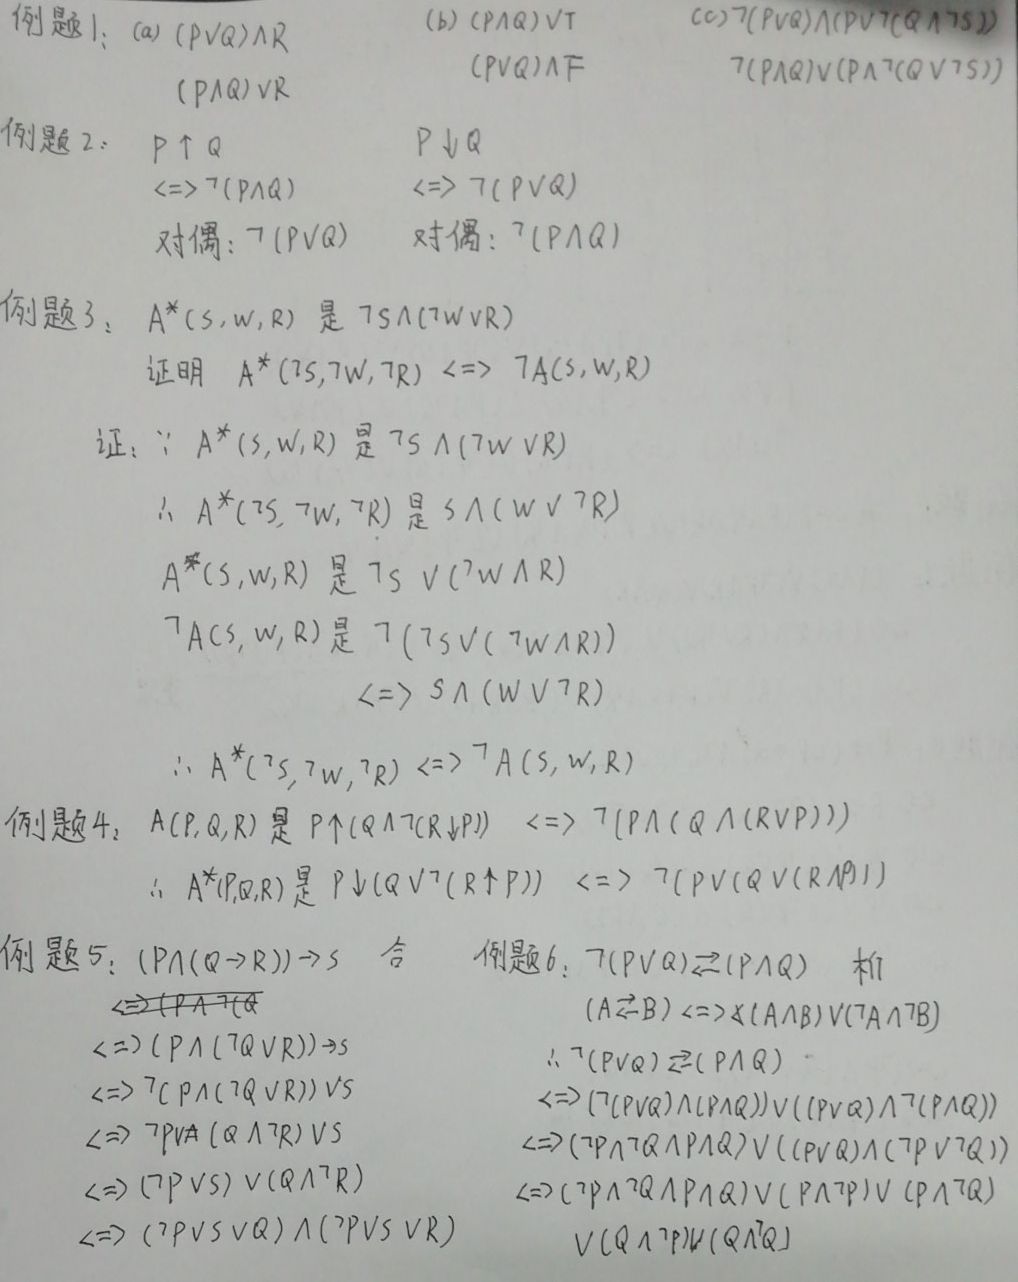 例题1: (a) (P∨Q)∧R (b) (P∧Q)∨T (c) ¬(P∨Q)∧(P∨¬(Q∧¬S))
(P∧Q)∨R (P∨Q)∧F ¬(P∧Q)∨(P∧¬(Q∨¬S))
例题2: P↑Q P↓Q
<=> ¬(P∧Q) <=> ¬(P∨Q)
对偶: ¬(P∨Q) 对偶: ¬(P∧Q)
例题3: A*(S,W,R) 是 ¬S∧(¬W∨R)
证明 A*(¬S,¬W,¬R) <=> ¬A(S,W,R)
证: ∵ A*(S,W,R) 是 ¬S∧(¬W∨R)
∴ A*(¬S,¬W,¬R) 是 S∧(W∨¬R)
A*(S,W,R) 是 ¬S∨(¬W∧R)
¬A(S,W,R) 是 ¬(¬S∨(¬W∧R))
<=> S∧(W∨¬R)
∴ A*(¬S,¬W,¬R) <=> ¬A(S,W,R)
例题4: A(P,Q,R) 是 P↑(Q∧¬(R↓P)) <=> ¬(P∧(Q∧(R∨P)))
∴ A*(P,Q,R) 是 P↓(Q∨¬(R↑P)) <=> ¬(P∨(Q∨(R∧P)))
例题5: (P∧(Q→R))→S 合
<=>(P∧¬(Q
<=>(P∧(¬Q∨R))→S
<=> ¬(P∧(¬Q∨R))∨S
<=> ¬P∨(Q∧¬R)∨S
<=> (¬P∨S)∨(Q∧¬R)
<=> (¬P∨S∨Q)∧(¬P∨S∨R)
例题6: ¬(P∨Q)⇄(P∧Q) 析
(A⇄B) <=> (A∧B)∨(¬A∧¬B)
∴ ¬(P∨Q)⇄(P∧Q)
<=>(¬(P∨Q)∧(P∧Q))∨((P∨Q)∧¬(P∧Q))
<=>(¬P∧¬Q∧P∧Q)∨((P∨Q)∧(¬P∨¬Q))
<=>(¬P∧¬Q∧P∧Q)∨(P∧¬P)∨(P∧¬Q)
∨(Q∧¬P)∨(Q∧¬Q)